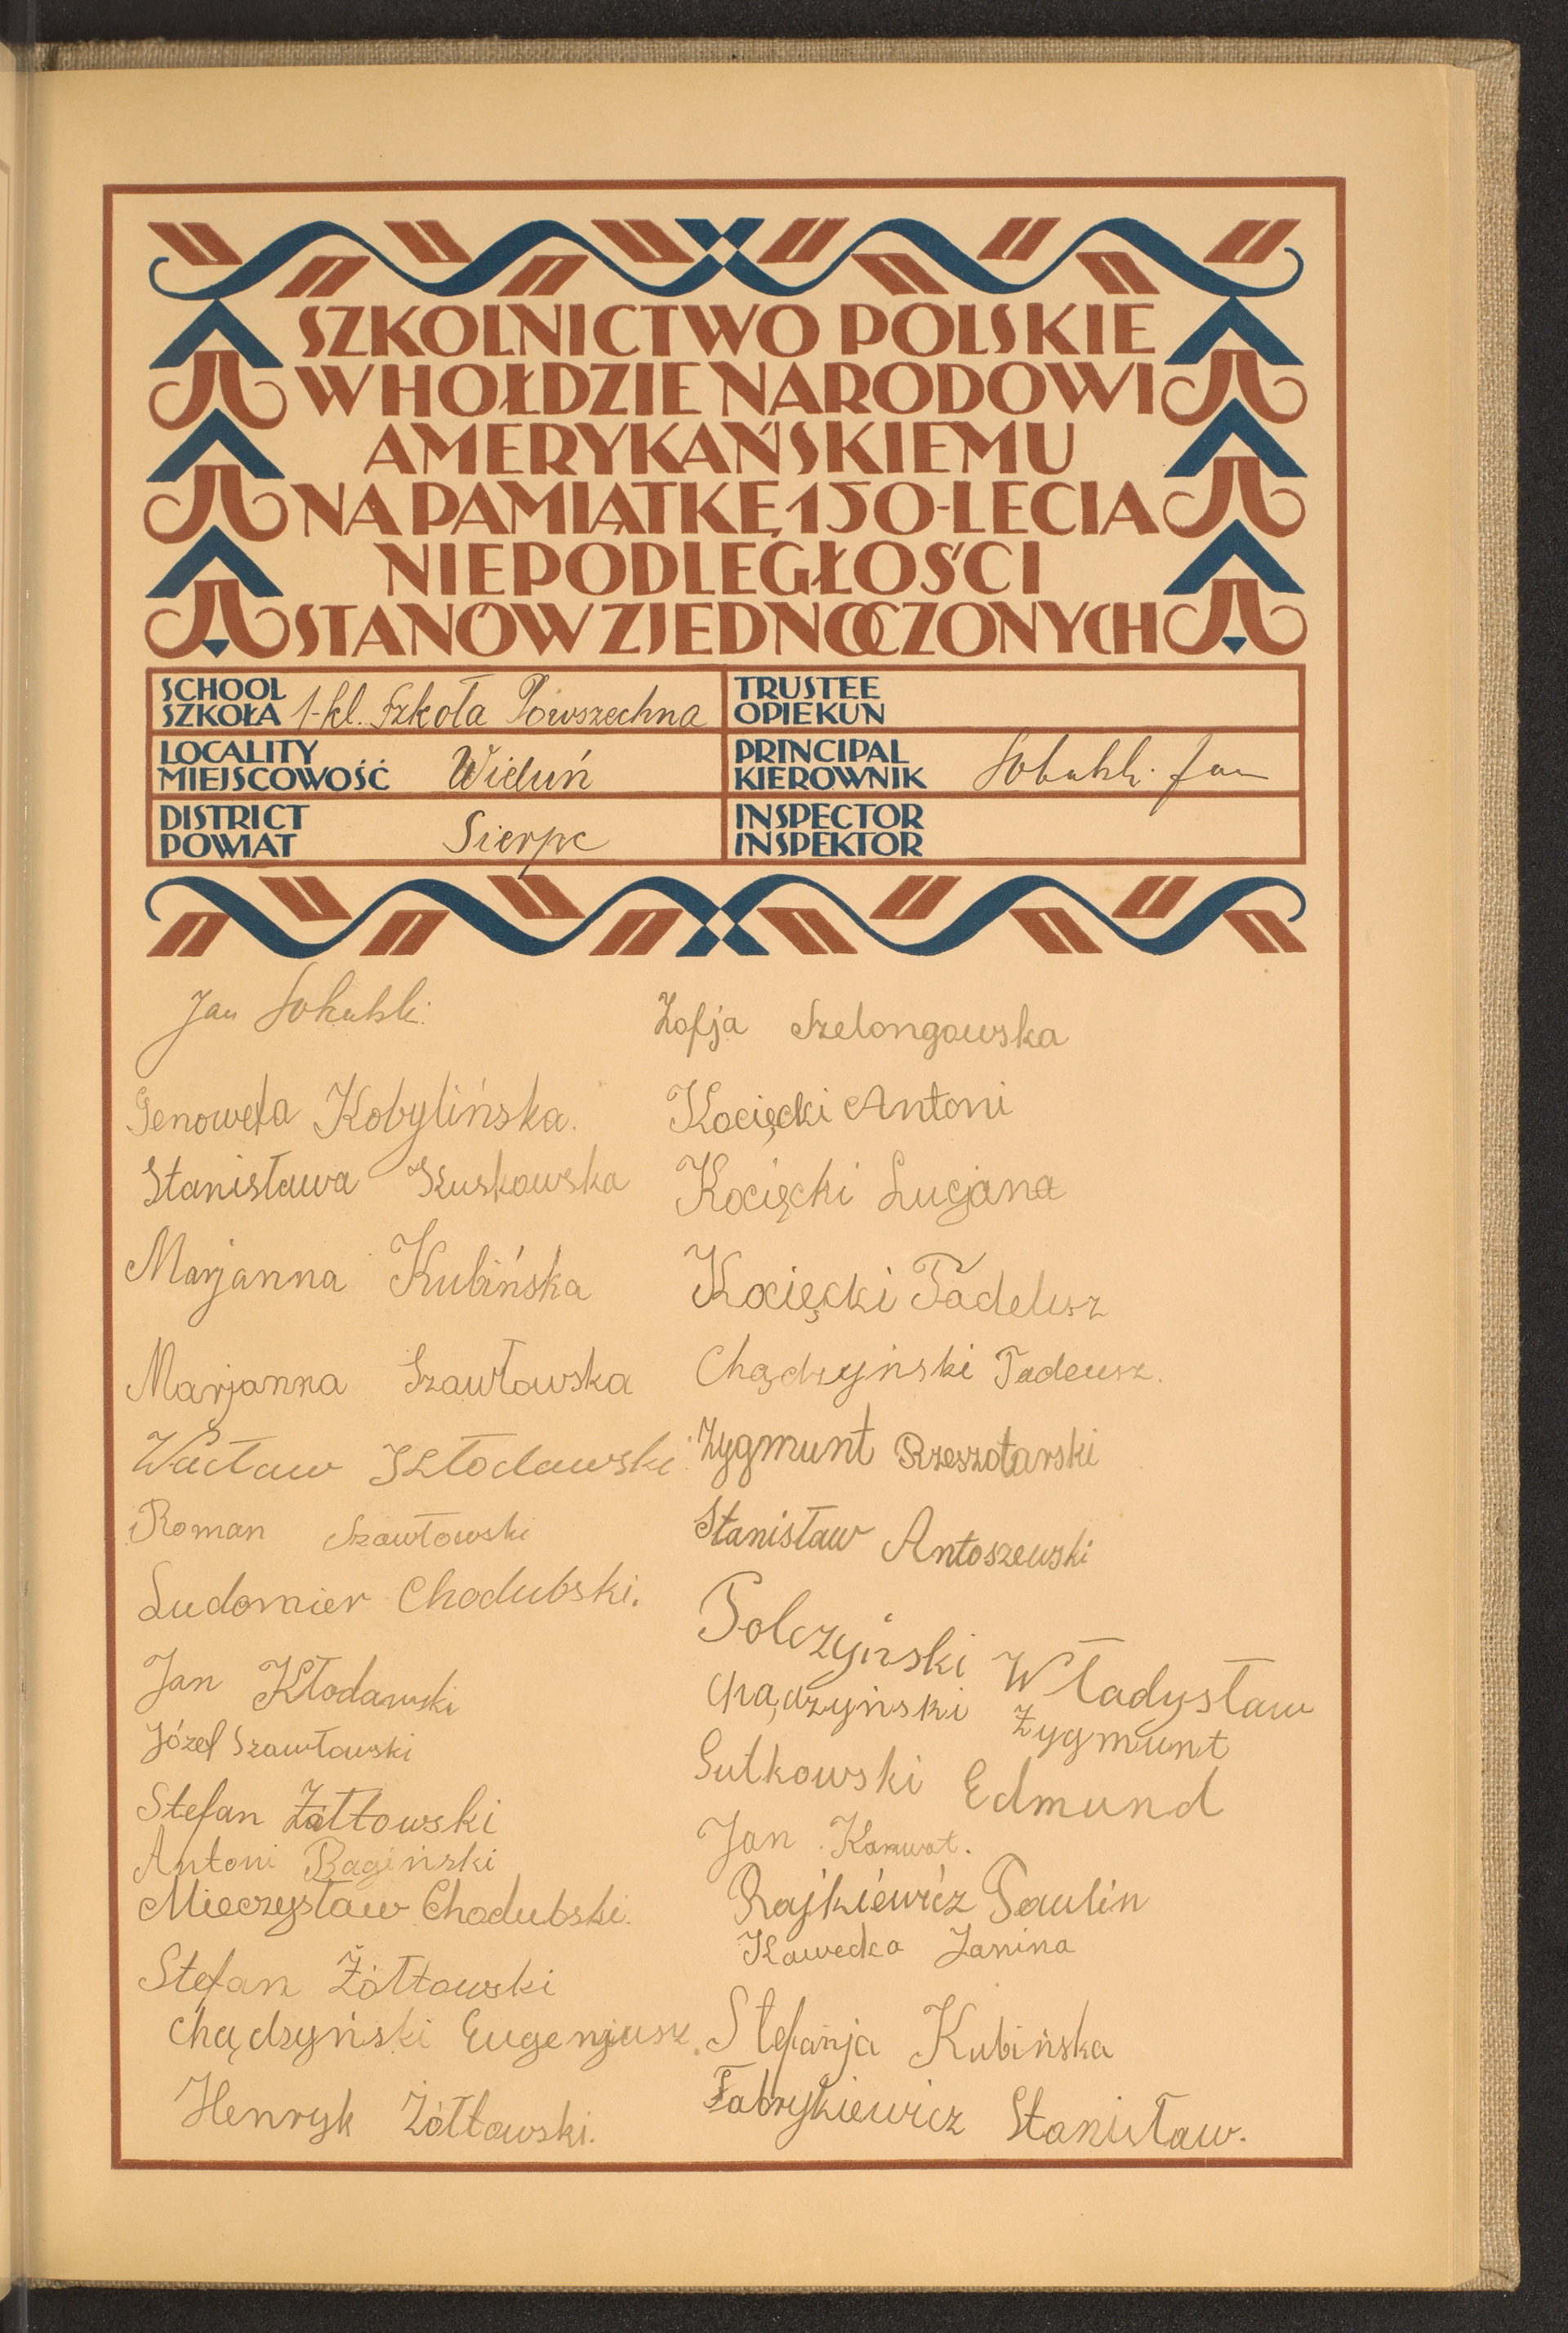 SZKOLNICTWO POLSKIE
W HOŁDZIE NARODOWI
AMERYKAŃSKIEMU
NA PAMIĄTKĘ 150-LECIA
NIEPODLEGŁOŚCI
STANÓW ZJEDNOCZONYCH
SCHOOL
SZKOŁA 1-kl. Szkoła Powszechna
TRUSTEE
OPIEKUN
LOCALITY
MIEJSCOWOŚĆ Wieluń
PRINCIPAL
KIEROWNIK Jan
DISTRICT
POWIAT Sierpc
INSPECTOR
INSPEKTOR
Jan
Genowefa Kobylińska.
Stanisława
Marjanna Kubińska
Marjanna Szawłowska
Wacław
Roman Szawłowski
Ludomier Chodubski.
Jan Kłodawski
Józef Szawłowski
Stefan Żółtowski
Antoni Bagiński
Mieczysław Chodubski.
Stefan Żółtowski
Chądzyński Eugenjusz.
Henryk Żółtowski.
Zofja Szelongowska
Kocięcki Antoni
Kocięcki Lucjana
Kocięcki Tadeusz
Chądzyński Tadeusz.
Zygmunt Rzeszotarski
Stanisław Antoszewski
Tolczyński Władysław
Chądzyński Zygmunt
Sutkowski Edmund
Jan Karwat.
Rajkiéwicz Paulin
Kawecka Janina
Stefanja Kubińska
Fabrykiewicz Stanisław.